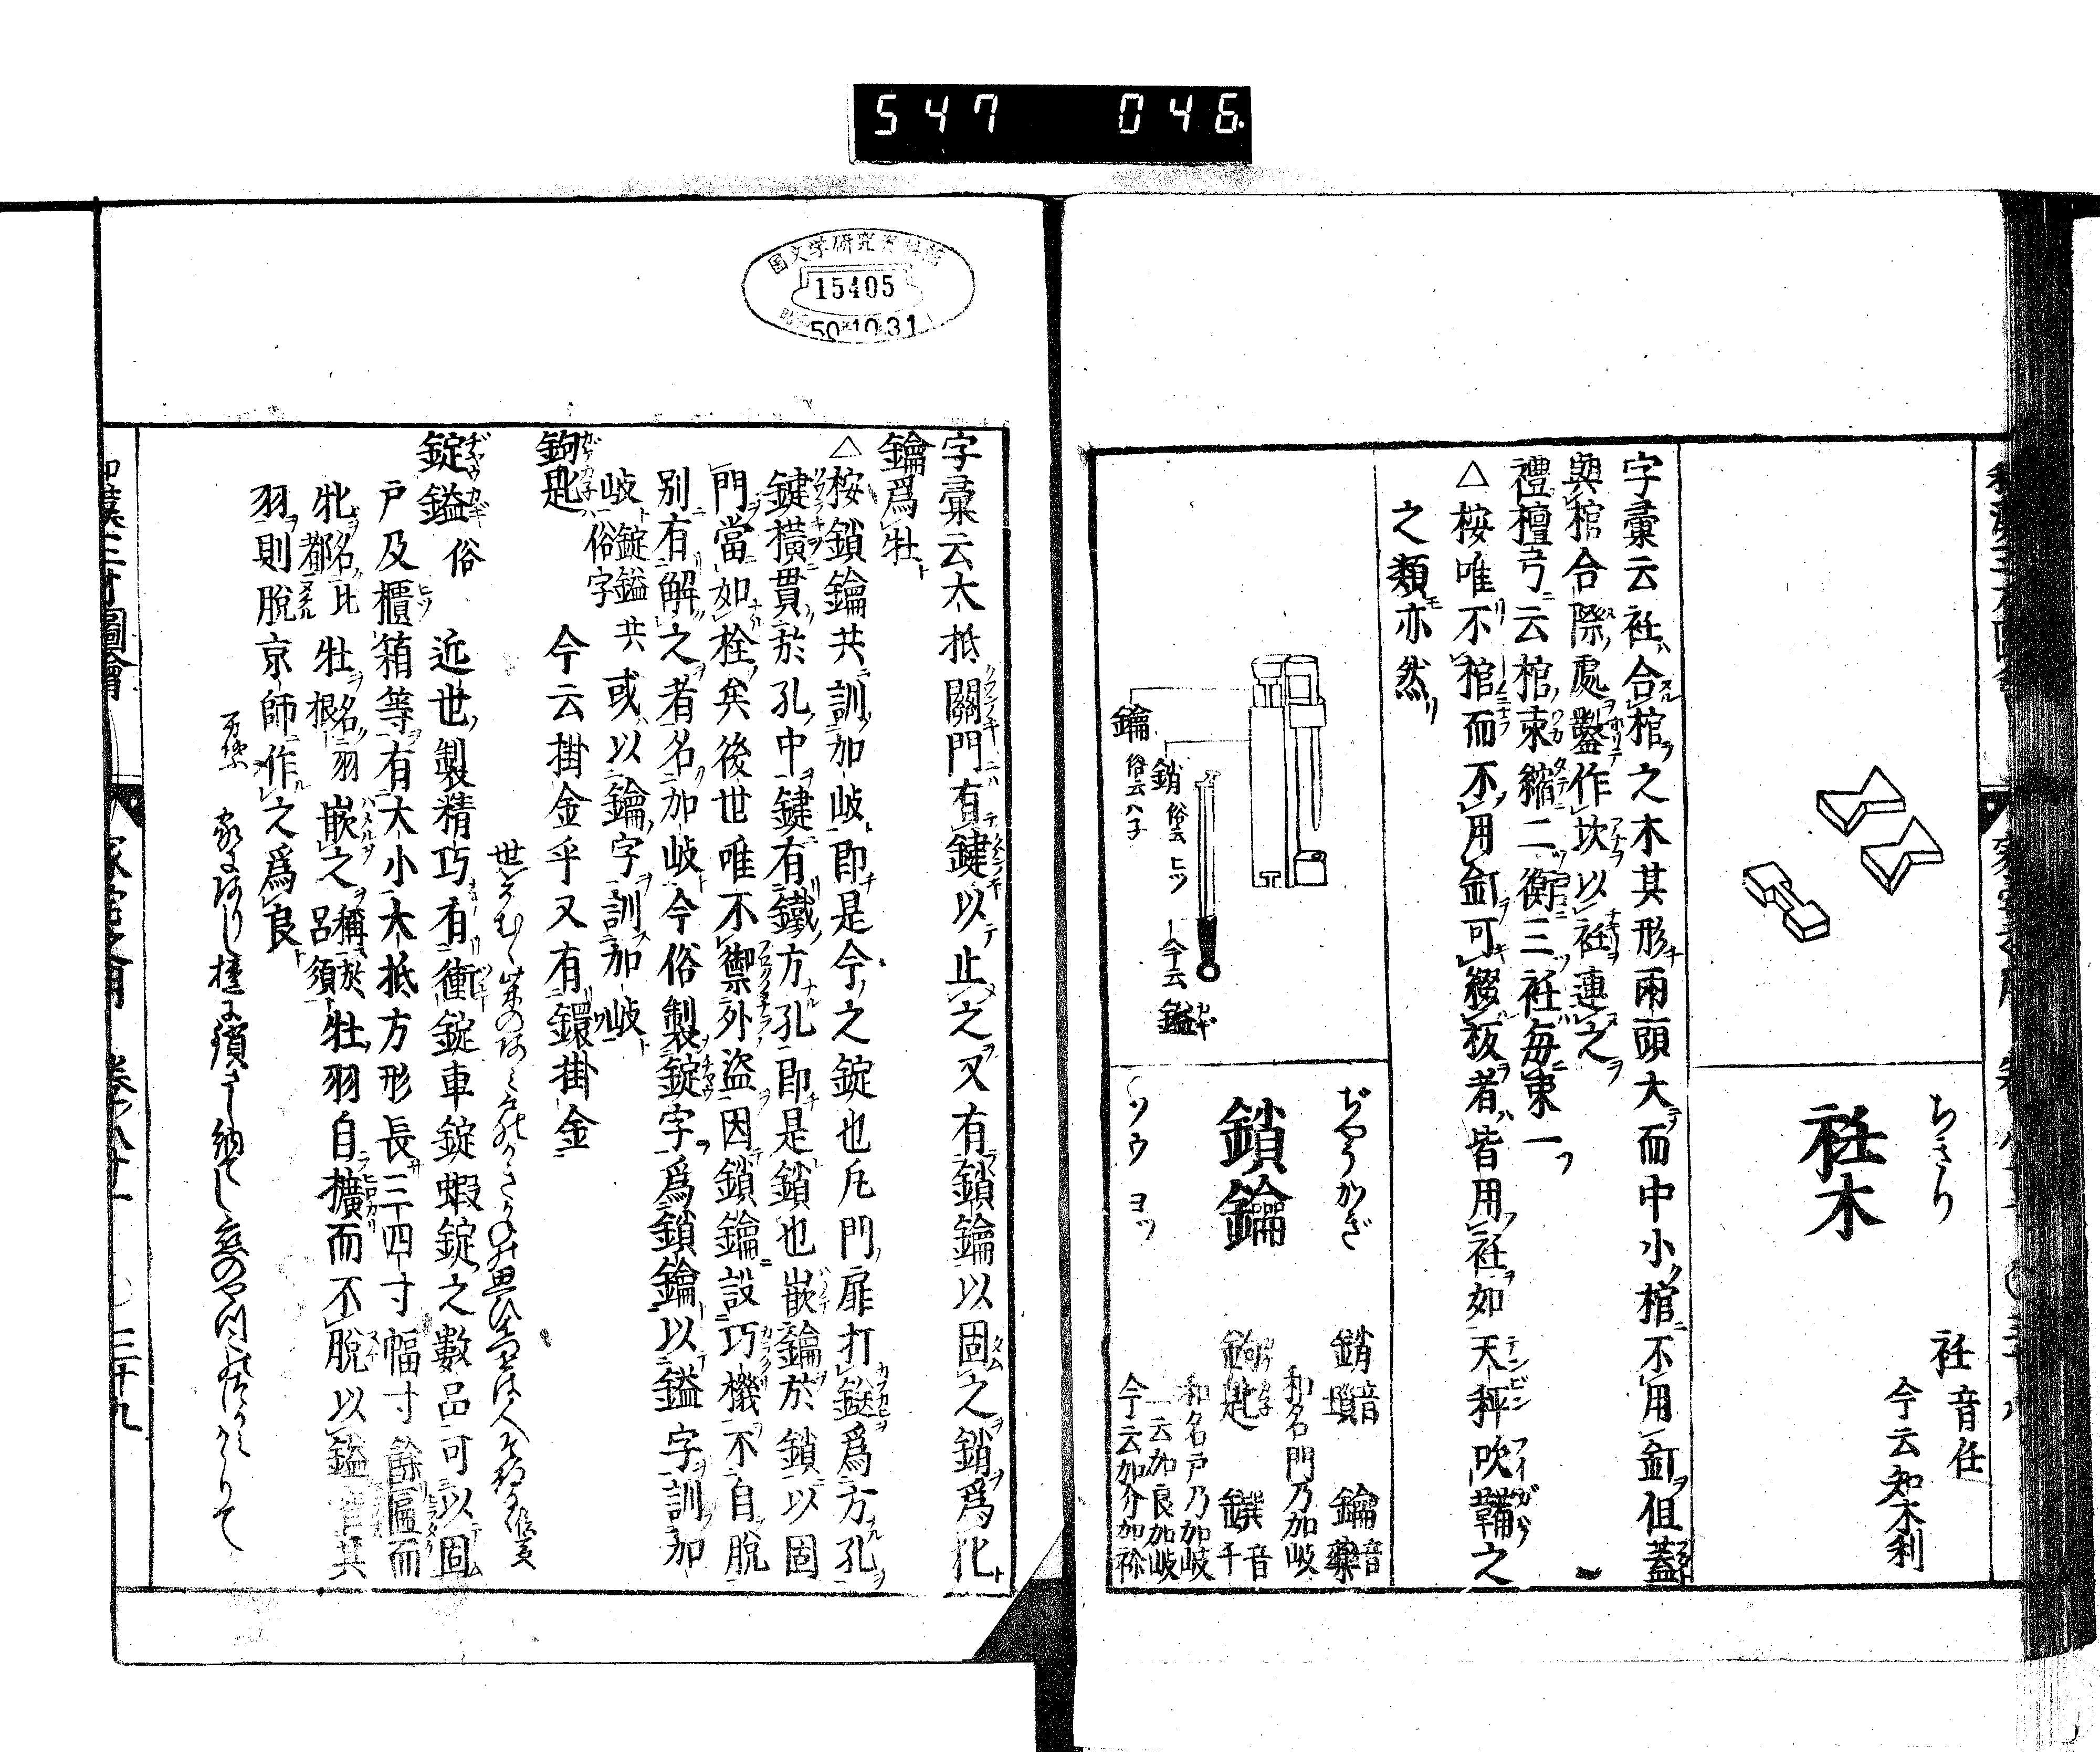 547 046
国文学研究資料館
15405
50.10.31
ちきり
衽木
衽音任
今云知木利
字彙云衽合棺之木其形兩頭大而中小棺不用釘但蓋
與棺合際處鑿作坎以衽連之
禮檀弓云棺束縮二衡三衽每束一
△桉唯不棺而不用釘可綴板者皆用衽如天秤吹鞴之
之類亦然
鑰俗云ハ子
銷俗云ヒツ
今云鎰
ぢやうかぎ
鎖鑰
ソウ ヨツ
銷音瑣 鑰音藥
和名門乃加岐
鉤匙 鏍音千
和名戸乃加岐
一云加良加岐
今云加介加祢
字彙云大抵關門有鍵以止之又有鎖鑰以固之銷爲牝
鑰爲牡
△桉鎖鑰共訓加岐卽是今之錠也凡門扉打鎹爲方孔
鍵橫貫於孔中鍵有鐵方孔卽是鎖也嵌鑰於鎖以固
門當如栓矣後世唯不禦外盜因鎖鑰設巧機不自脫
別有解之者名加岐今俗製錠字爲鎖鑰以鎰字訓加
岐錠鎰共俗字或以鑰字訓加岐
鉤匙 今云掛金乎又有鐶掛金
錠鎰俗 近世製精巧有衝錠車錠蝦錠之數品可以固
戸及櫃箱等有大小大抵方形長三四寸幅寸餘匾而
牝名比都牡名羽根嵌之稱於呂須牡羽自擴而不脫以鎰官其
羽則脫京師作之爲良
万葉
和漢三才圖會
家宅之用 卷ノ八十一 ○三十九